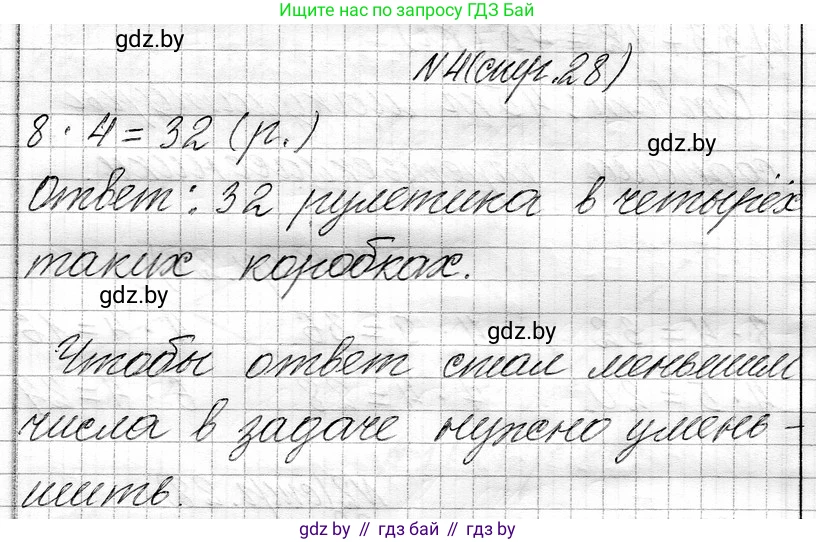 Ищите нас по запросу ГДЗ Бай
gdz.by
N4(стр.28)
8 · 4 = 32 (р.)
gdz.by
Ответ: 32 рулетика в четырёх
таких коробках.
gdz.by
gdz.by
Чтобы ответ стал меньшим
числа в задаче нужно умень-
шить.
gdz.by // гдз бай // gdz.by